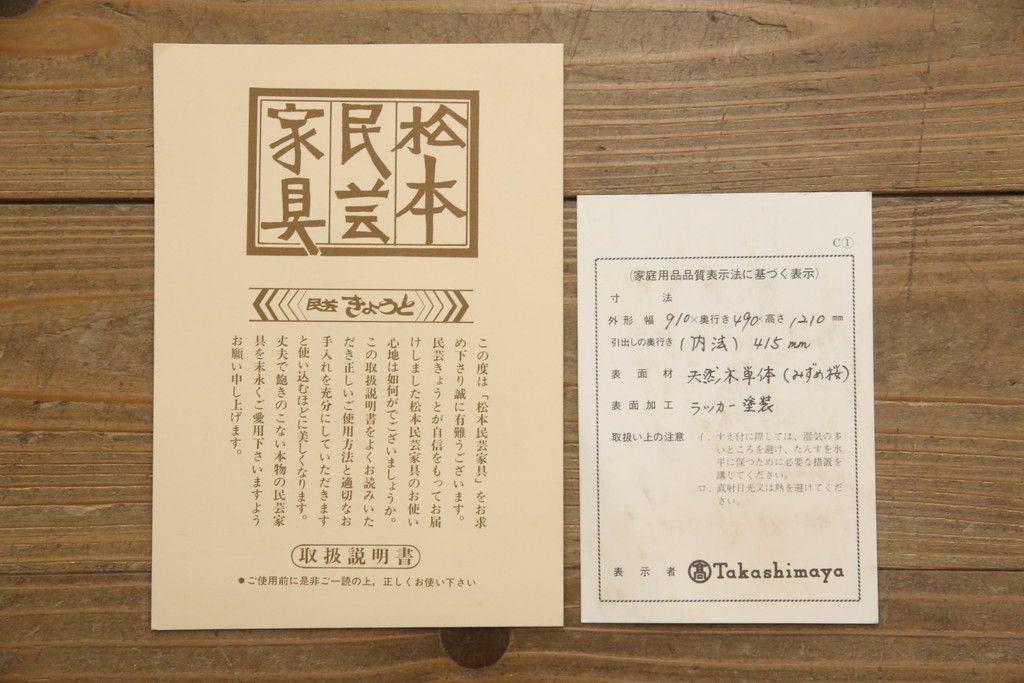 松本
民芸
家具
民芸きょうと
この度は「松本民芸家具」をお求
め下さり誠に有難うございます。
民芸きょうとが自信をもってお届
けしました松本民芸家具のお使い
心地は如何がでございましょうか。
この取扱説明書をよくお読みいた
だき正しいご使用方法と適切なお
手入れを充分にしていただきます
と使い込むほどに美しくなります。
丈夫で飽きのこない本物の民芸家
具を末永くご愛用下さいますよう
お願い申し上げます。
取扱説明書
●ご使用前に是非ご一読の上，正しくお使い下さい
C①
(家庭用品品質表示法に基づく表示)
寸法
外形 幅 910×奥行き490×高さ1210 mm
引出しの奥行き (内法) 415 mm
表面材 天然木単体(みずめ桜)
表面加工 ラッカー塗装
取扱い上の注意 イ．すえ付に際しては、湿気の多
いところを避け、たんすを水
平に保つために必要な措置を
講じてください。
ロ．直射日光又は熱を避けてくだ
さい。
表示者 髙Takashimaya